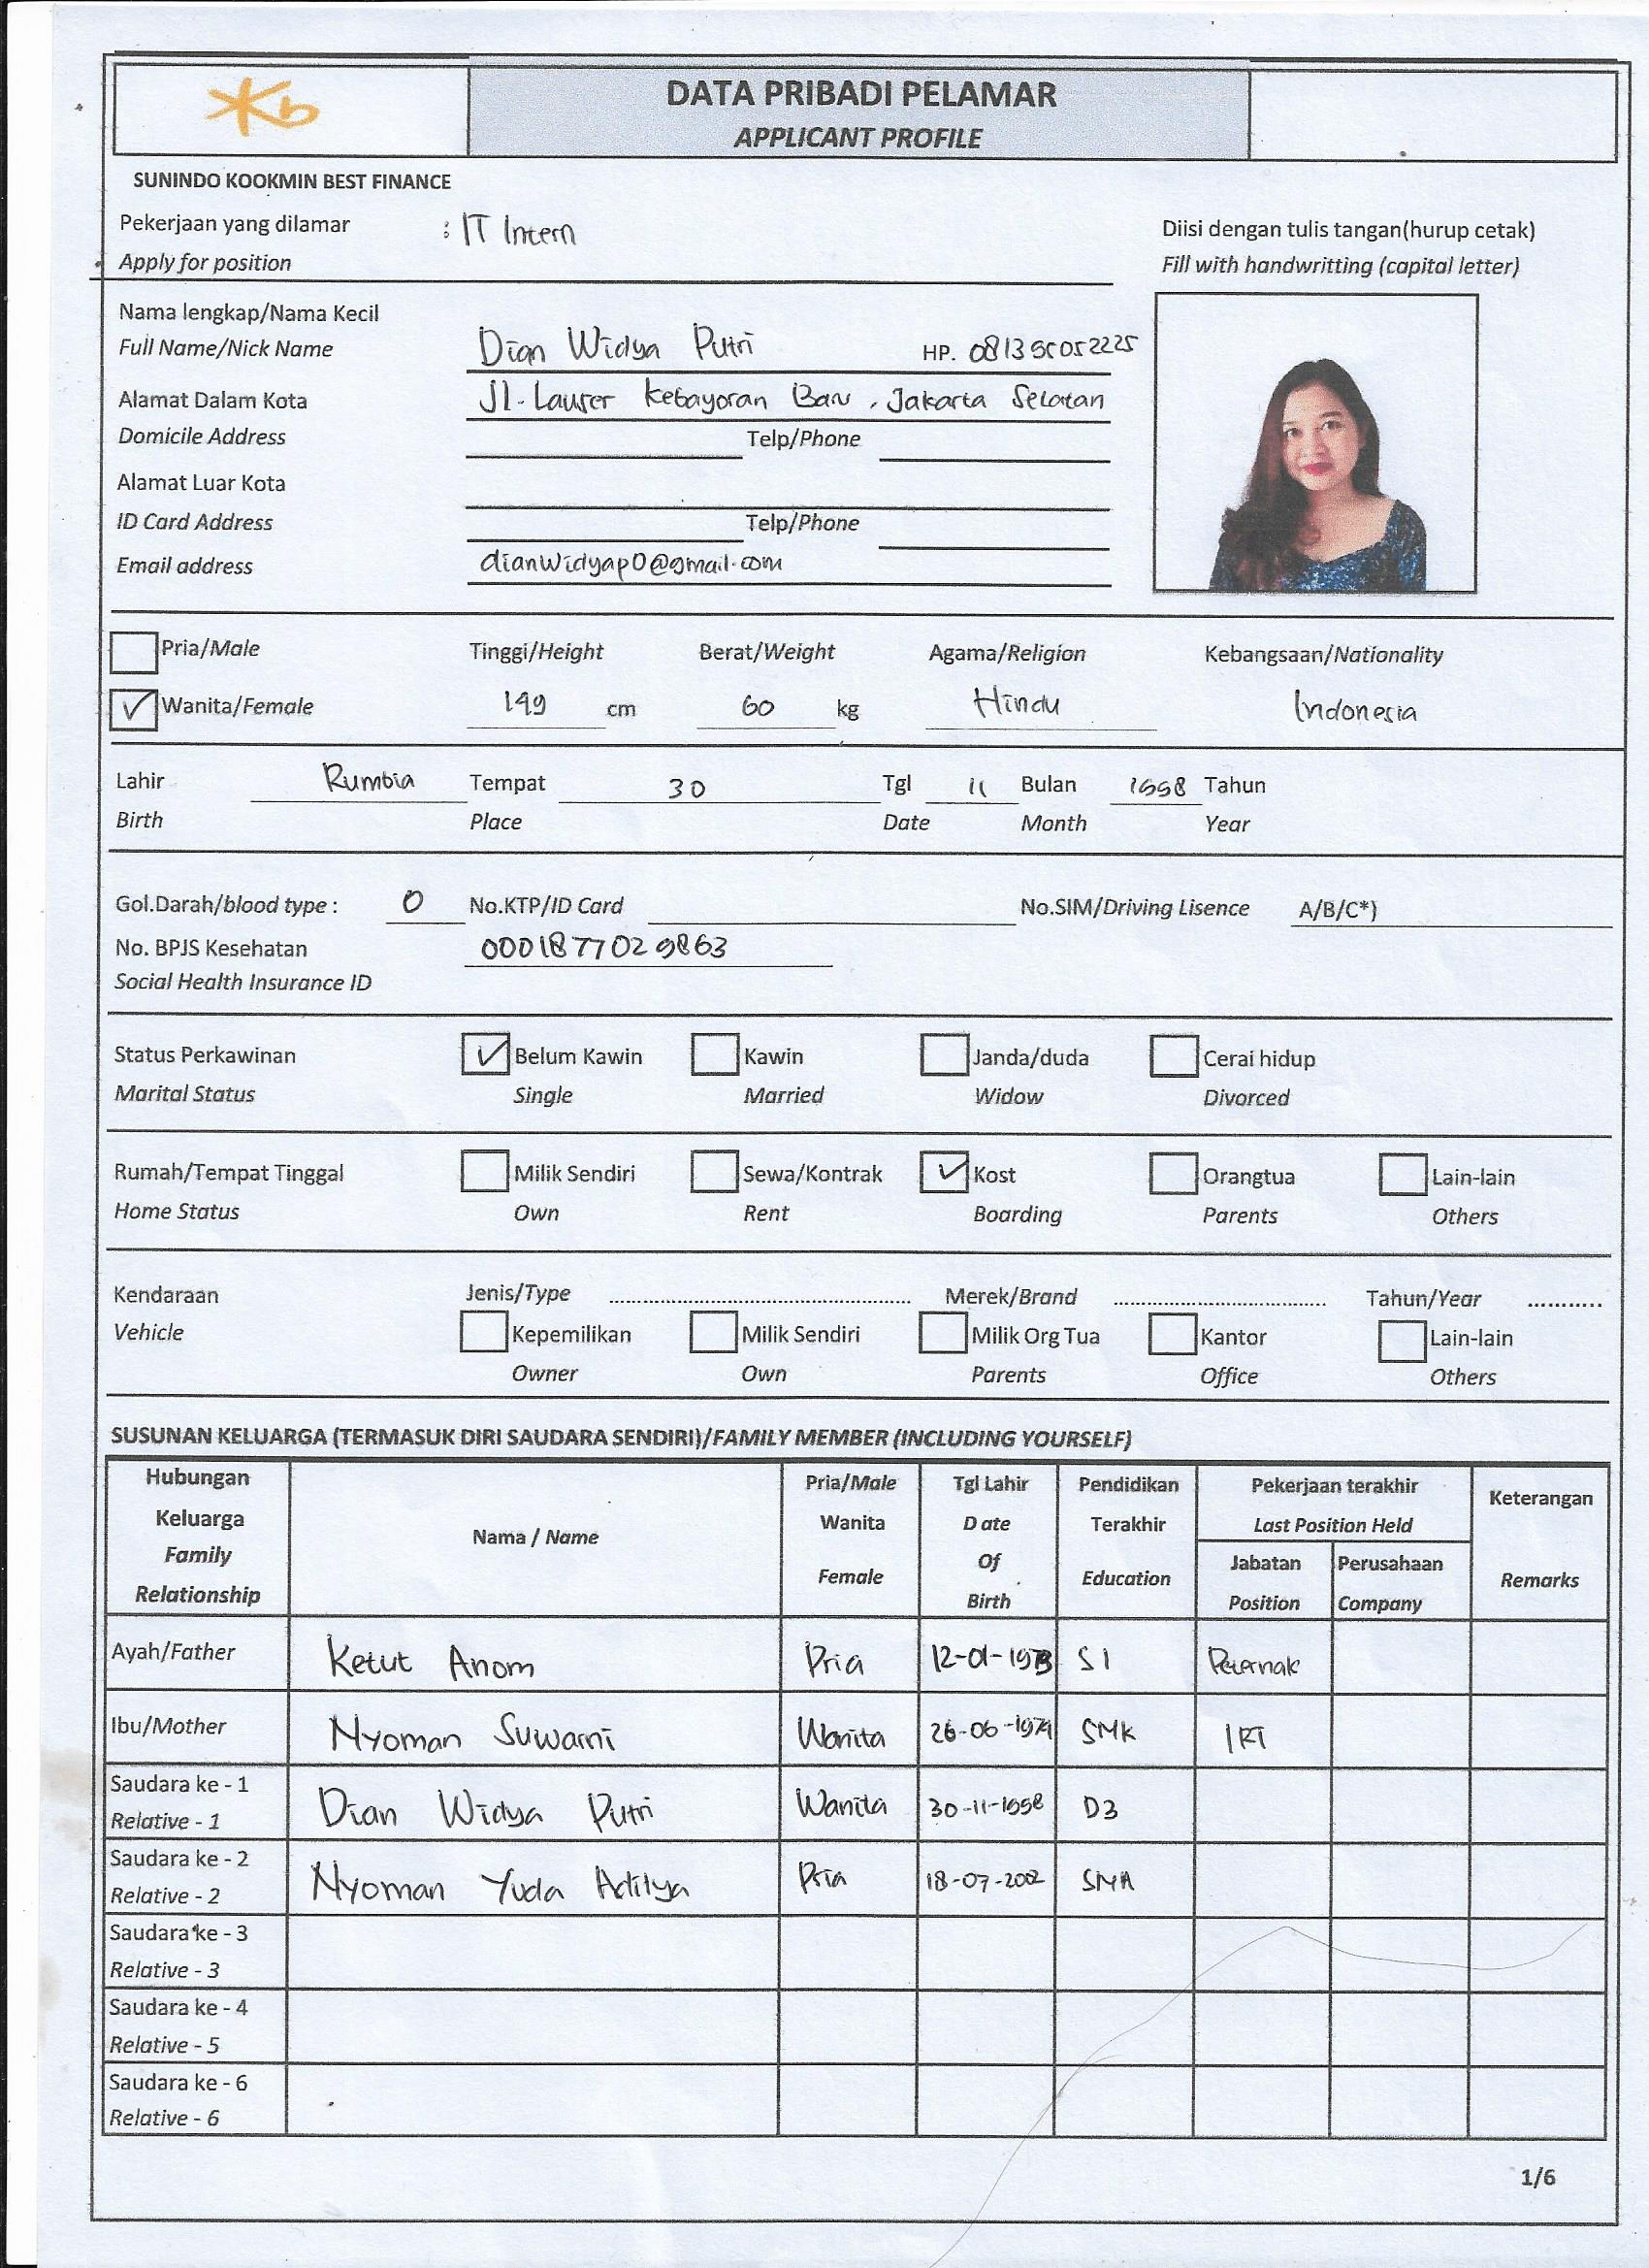 Kb
DATA PRIBADI PELAMAR
APPLICANT PROFILE
SUNINDO KOOKMIN BEST FINANCE
Pekerjaan yang dilamar : IT Intern
Apply for position
Diisi dengan tulis tangan(hurup cetak)
Fill with handwritting (capital letter)
Nama lengkap/Nama Kecil
Full Name/Nick Name Dian Widya Putri HP.
Alamat Dalam Kota Jl. Lauser Kebayoran Baru, Jakarta Selatan
Domicile Address Telp/Phone
Alamat Luar Kota
ID Card Address Telp/Phone
Email address dianwidyap0@gmail.com
Pria/Male Tinggi/Height Berat/Weight Agama/Religion Kebangsaan/Nationality
Wanita/Female 149 cm 60 kg Hindu Indonesia
Lahir Rumbia Tempat 30 Tgl 11 Bulan 1998 Tahun
Birth Place Date Month Year
Gol.Darah/blood type : O No.KTP/ID Card No.SIM/Driving Lisence A/B/C*)
No. BPJS Kesehatan 0001877029863
Social Health Insurance ID
Status Perkawinan Belum Kawin Kawin Janda/duda Cerai hidup
Marital Status Single Married Widow Divorced
Rumah/Tempat Tinggal Milik Sendiri Sewa/Kontrak Kost Orangtua Lain-lain
Home Status Own Rent Boarding Parents Others
Kendaraan Jenis/Type Merek/Brand Tahun/Year
Vehicle Kepemilikan Milik Sendiri Milik Org Tua Kantor Lain-lain
Owner Own Parents Office Others
SUSUNAN KELUARGA (TERMASUK DIRI SAUDARA SENDIRI)/FAMILY MEMBER (INCLUDING YOURSELF)
Hubungan Keluarga Family Relationship
Nama / Name
Pria/Male Wanita Female
Tgl Lahir D ate Of Birth
Pendidikan Terakhir Education
Pekerjaan terakhir Last Position Held
Jabatan Position
Perusahaan Company
Keterangan Remarks
Ayah/Father Ketut Anom Pria S1 Peternak
Ibu/Mother Nyoman Suwarni Wanita SMK IRT
Saudara ke - 1
Relative - 1 Dian Widya Putri Wanita 30-11-1998 D3
Saudara ke - 2
Relative - 2 Nyoman Yuda Aditya Pria 18-07-2002 SMA
Saudara ke - 3
Relative - 3
Saudara ke - 4
Relative - 5
Saudara ke - 6
Relative - 6
1/6